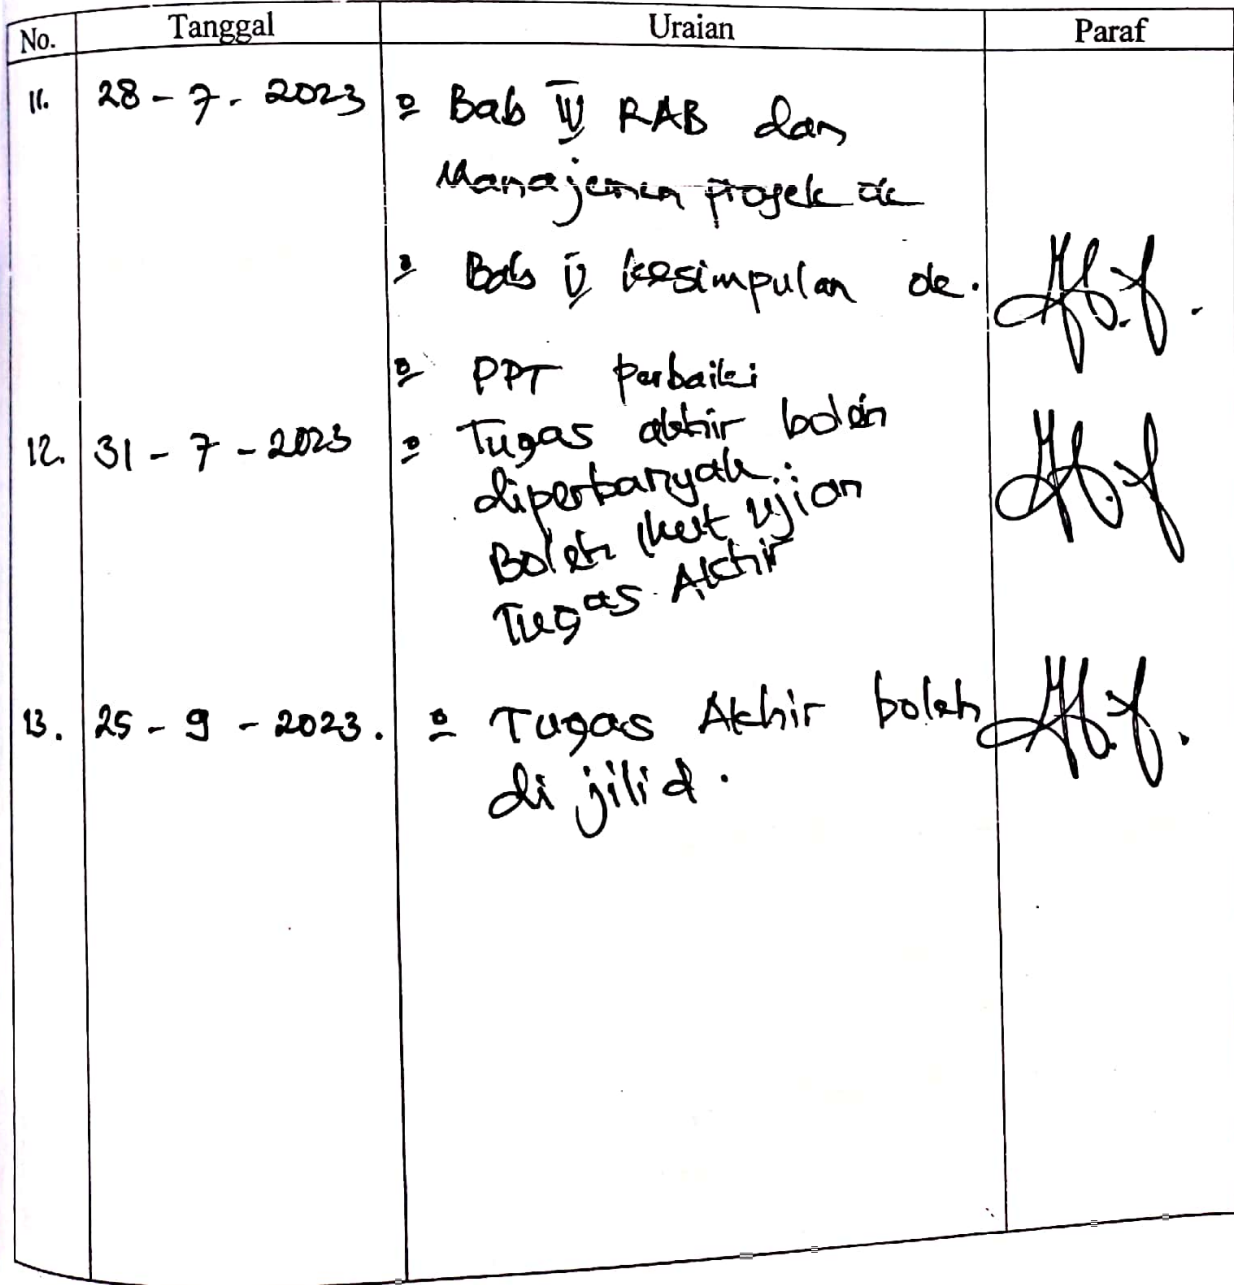 No. Tanggal Uraian Paraf
11. 28 - 7 - 2023 Bab IV RAB dan
Manajemen proyek ok
Bab V kesimpulan ok.
PPT perbaiki
12. 31 - 7 - 2023 Tugas akhir boleh
diperbanyak.
Boleh ikut ujian
Tugas Akhir
13. 25 - 9 - 2023. Tugas Akhir boleh
di jilid.